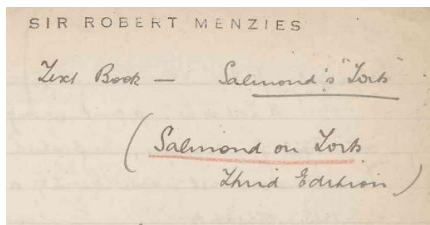 SIR ROBERT MENZIES
Text Book — Salmond's "Torts"
(Salmond on Torts
Third Edition)